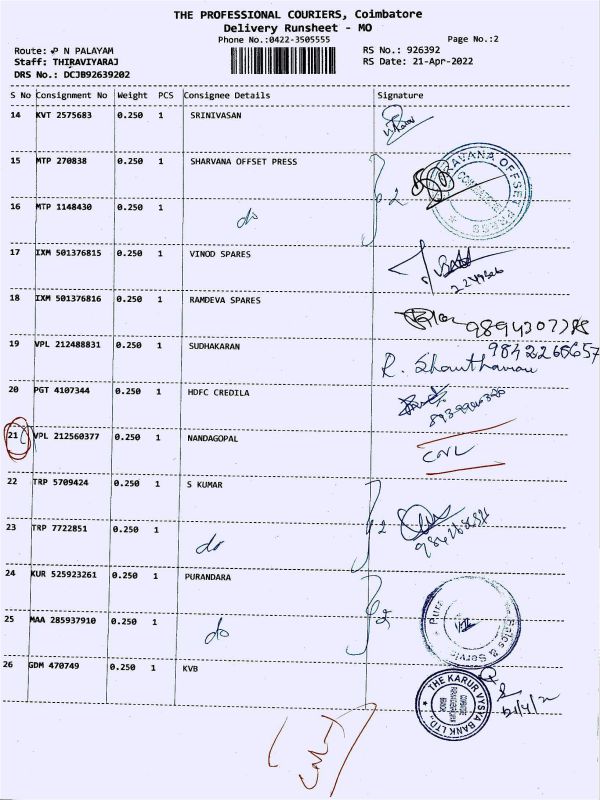 THE PROFESSIONAL COURIERS, Coimbatore
Delivery Runsheet - MO
Phone No.:0422-3505555
Page No.:2
Route: P N PALAYAM
RS No.: 926392
Staff: THIRAVIYARAJ
RS Date: 21-Apr-2022
DRS No.: DCJB92639202
S No Consignment No Weight PCS Consignee Details Signature
14 KVT 2575683 0.250 1 SRINIVASAN
15 MTP 270838 0.250 1 SHARVANA OFFSET PRESS
2
16 MTP 1148430 0.250 1 do
17 IXM 501376815 0.250 1 VINOD SPARES
18 IXM 501376816 0.250 1 RAMDEVA SPARES
19 VPL 212488831 0.250 1 SUDHAKARAN
9842266657
20 PGT 4107344 0.250 1 HDFC CREDILA
21 VPL 212560377 0.250 1 NANDAGOPAL
CNL
22 TRP 5709424 0.250 1 S KUMAR
2
23 TRP 7722851 0.250 1 do
24 KUR 525923261 0.250 1 PURANDARA
2
25 MAA 285937910 0.250 1 do
26 GDM 470749 0.250 1 KVB
THE KARUR VYSYA BANK LTD.